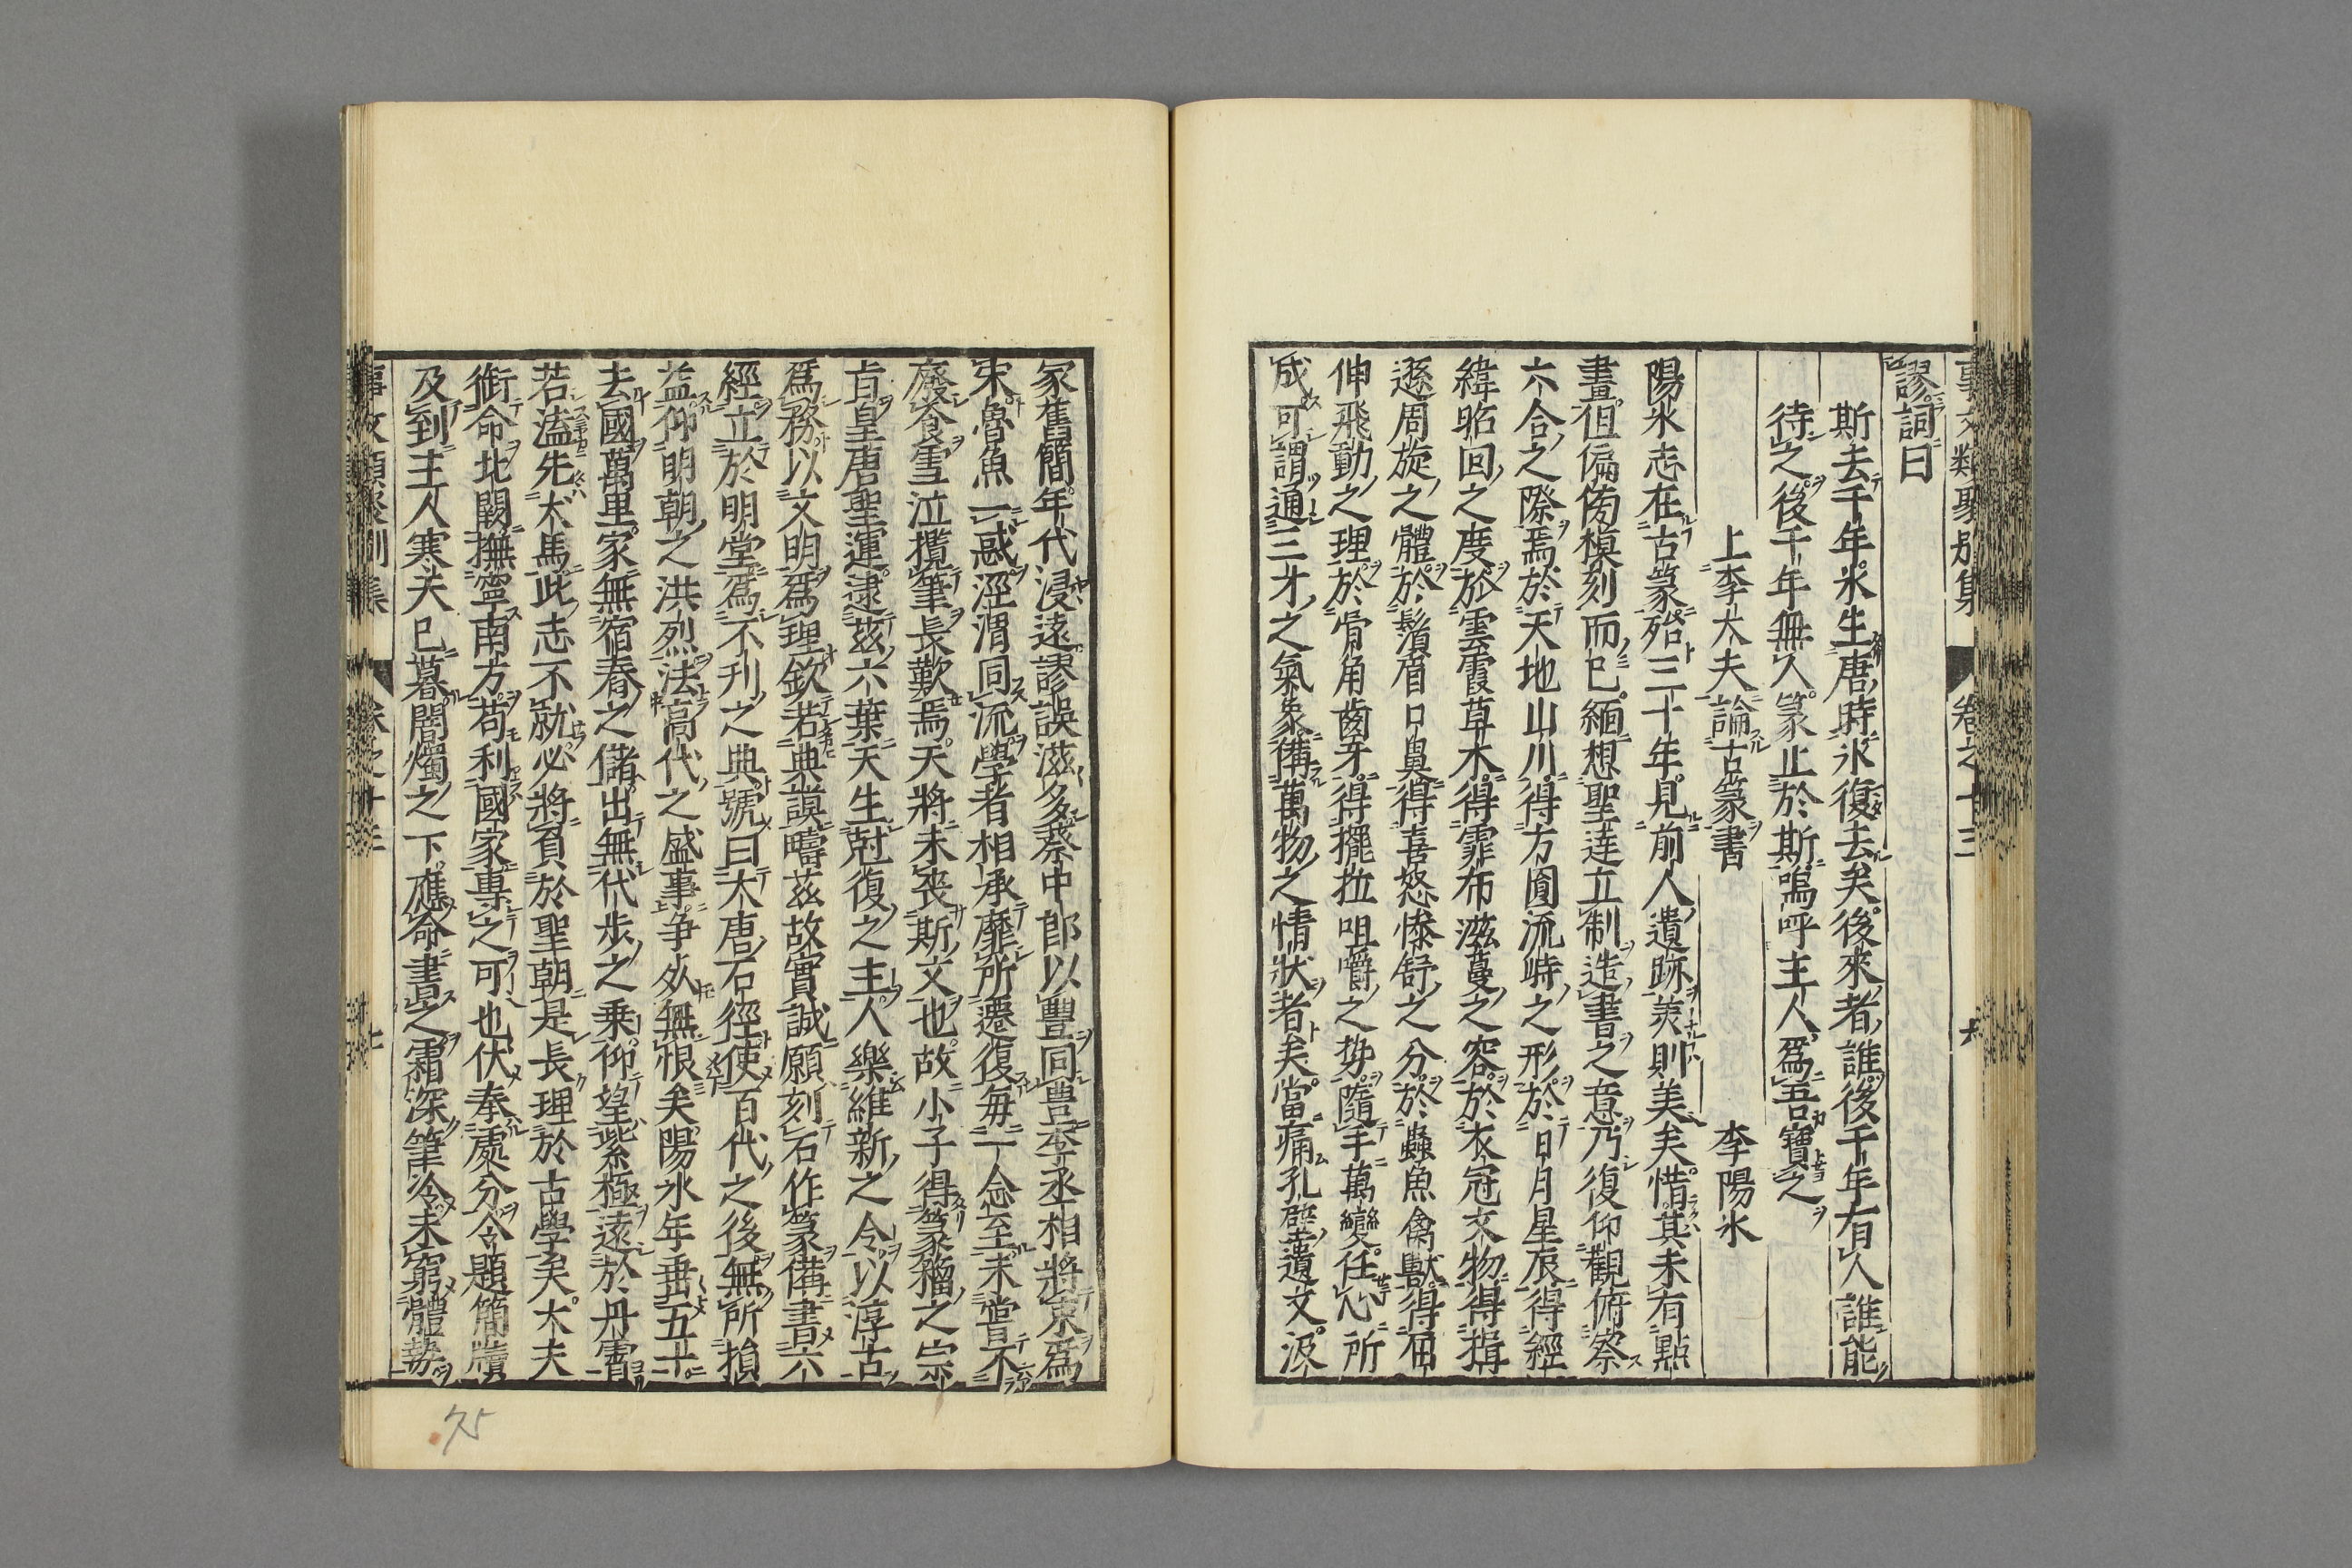 謬詞曰
斯去千年氷生唐時氷復去矣後來者誰後千年有人誰能
待之後千年無人篆止於斯嗚呼主人爲吾寶之
上李大夫論古篆書 李陽氷
陽氷志在古篆殆三十年見前人遺跡羙則美矣惜其未有點
畫但偏傍模刻而已緬想聖達立制造書之意乃復仰觀俯察
六合之際焉於天地山川得方圓流峙之形於日月星辰得經
緯昭回之度於雲霞草木得霏布滋蔓之容於衣冠文物得揖
遜周旋之體於鬚眉口鼻得喜怒慘舒之分於蟲魚禽獸得屈
伸飛動之理於骨角齒牙得擺拉咀嚼之勢隨手萬變任心所
成可謂通三才之氣象備萬物之情狀者矣當痛孔壁遺文汲
冢舊簡年代浸遠謬誤滋多蔡中郎以豐同豊李丞相將朿爲
宋魯魚一惑涇渭同流學者相承靡所遷復毎一念至未嘗不
廢飡雪泣攬筆長歎焉天將未䘮斯文也故小子得篆籀之宗
㫖皇唐聖運逮兹六葉天生尅復之主人樂維新之令以淳古
爲務以文明爲理欽若典謨疇兹故實誠願刻石作篆備書六
經立於明堂爲不刋之典號曰大唐石徑使百代之後無所損
益仰明朝之洪烈法高代之盛事争㸃無恨矣陽氷年垂五十
去國萬里家無宿舂之儲出無代步之乗仰望紫極遠於丹霄
若溘先犬馬此志不就必將負於聖朝是長埋於古學矣大夫
衘命北闕撫寧南方苟利國家專之可也伏奉處分令題簡牘
及到主人寒天已暮闇燭之下應命書之霜深筆冷未窮體勢
事文類聚别集 卷之十三